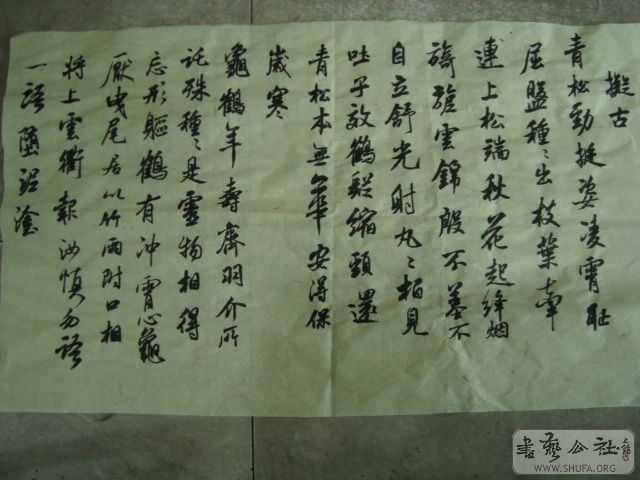 擬古
青松勁挺姿凌霄恥
屈盤種々出枝葉牽
連上松端秋花起絳烟
旖旎雲錦殷不羞不
自立舒光射丸々柏見
吐子效鶴疑縮頸還
青松本無華安得保
歲寒
龜鶴年壽齊羽介所
託殊種々是靈物相得
忘形軀鶴有沖霄心龜
厭曳尾居以竹兩附口相
將上雲衢報汝慎勿語
一語墮泥塗
書藝公社
WWW.SHUFA.ORG